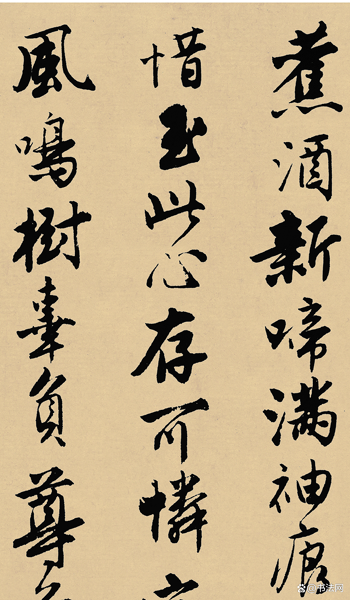 舊酒新啼滿袖痕
惜玉此心存可憐
風鳴樹辜負尊
書法网